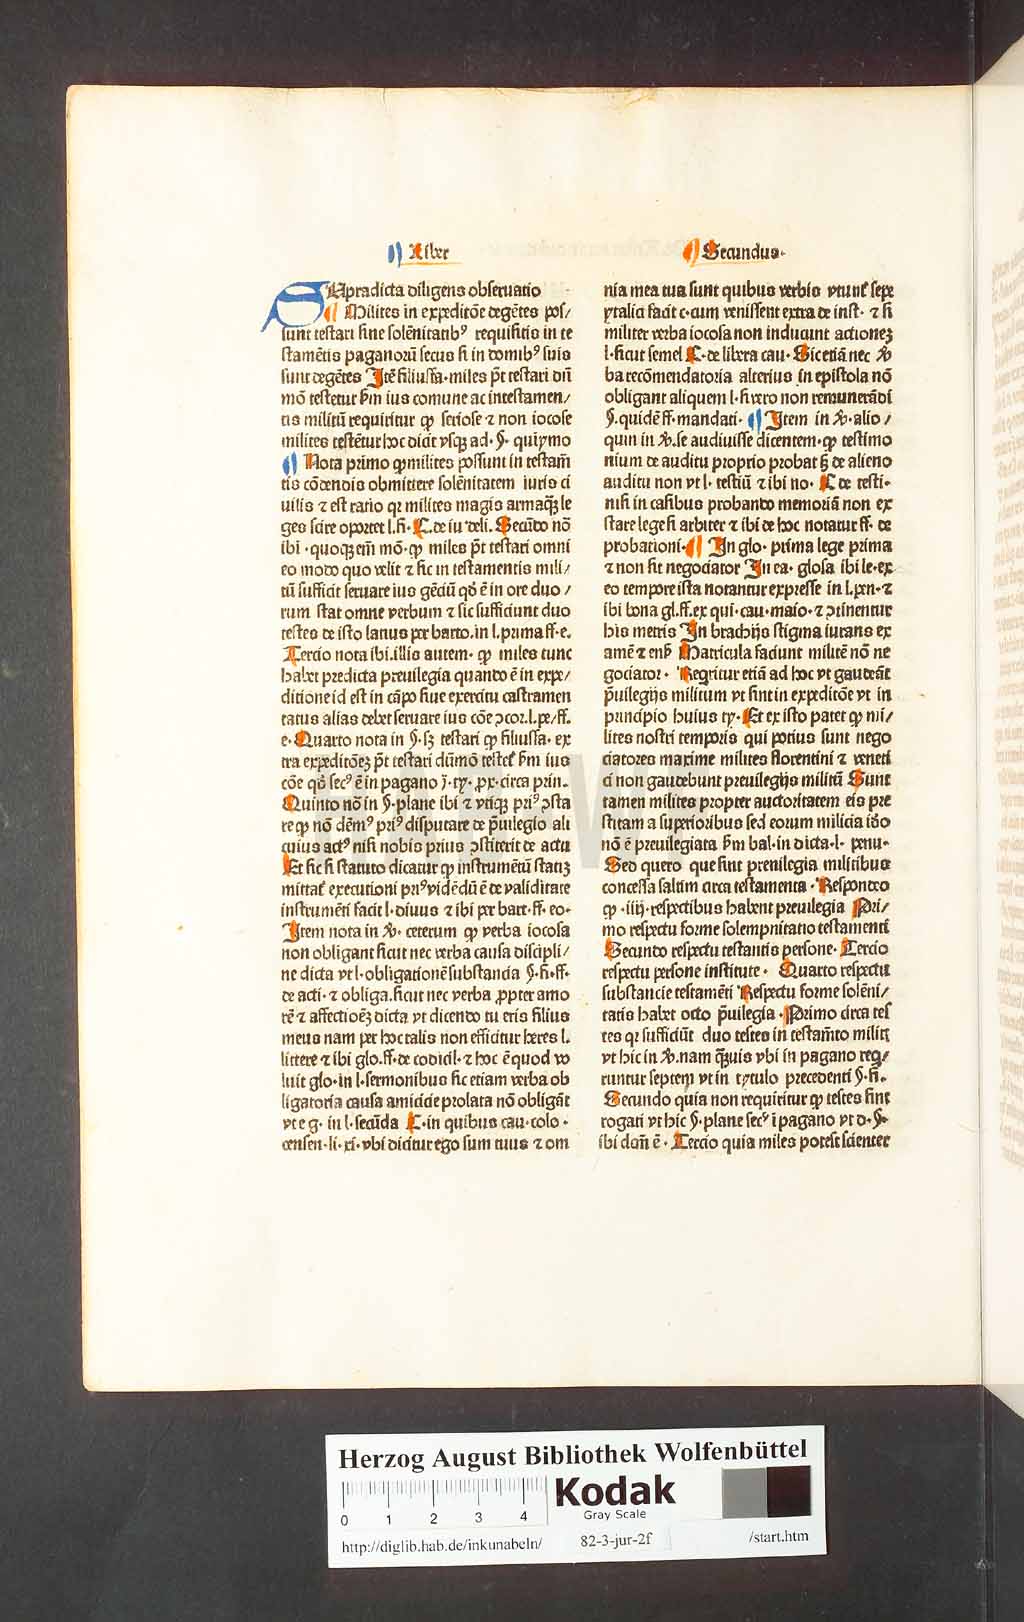 Liber Secundus.
Supradicta diligens obseruatio
¶ Milites in expeditiōe degētes pos/
sunt testari sine solēnitatibꝰ requisitis in te
stamētis paganorū secus si in domibꝰ suis
sunt degētes Itē filiusfa. miles pt̄ testari dū
mō testetur ẜm ius comune ac in testamen/
tis militū requiritur ꝙ seriose ⁊ non iocose
milites testētur hoc dicit vsqꝫ ad. §. quiymo
¶ Nota primo ꝙ milites possunt in testam̄
tis cōdendis obmittere solēnitatem iuris ci
uilis ⁊ est ratio qr milites magis arma qꝫ le
ges scire oportet l. fi. C. de iu deli. Secūdo nō
ibi. quoqꝫ em̄ mō. ꝙ miles pt̄ testari omni
eo modo quo velit ⁊ sic in testamentis mili/
tū sufficit seruare ius gēciū qd̓ ē in ore duo/
rum stat omne verbum ⁊ sic sufficiunt duo
testes de isto latius per barto. in l. prima ff. e.
Tercio nota ibi. illis autem. ꝙ miles tunc
habet predicta preuilegia quando ē in expe/
ditione id est in cāpo siue exercitu castramen
tatus alias debet seruare ius cōe ↄcor. l. pe/ ff.
e. Quarto nota in §. sꝫ testari ꝙ filiusfa. ex
tra expeditōeꝫ pt̄ testari dūmō testet̄ ẜm ius
cōe qd̓ secꝰ ē in pagano j. ty. ꝓx. circa prin.
Quinto nō in §. plane ibi ⁊ vtiqꝫ priꝰ ↄsta
re ꝙ nō dēmꝰ priꝰ disputare de p̄uilegio ali
cuius actꝰ nisi nobis prius ↄstiterit de actu
Et sic si statuto dicatur ꝙ instrumētū statiꝫ
mittat̄ executioni priꝰ vidēdū ē de validitate
instrumēti facit l. diuus ⁊ ibi per bart. ff. eo.
Item nota in ꝟ. ceterum ꝙ verba iocosa
non obligant sicut nec verba causa discipli/
ne dicta vt l. obligationē substancia §. fi. ff.
de acti. ⁊ obliga. sicut nec verba ꝓpter amo
rē ⁊ affectioēꝫ dicta vt dicendo tu eris filius
meus nam per hoc talis non efficitur heres l.
littere ⁊ ibi glo. ff. de codicil. ⁊ hoc ē quod vo
luit glo. in l. sermonibus sic etiam verba ob
ligatoria causa amicicie prolata nō obligāt
vt e g. in l. secūda C. in quibus cau. colo.
censen. li. xi. vbi dicitur ego sum tuus ⁊ om
nia mea tua sunt quibus verbis vtunt̄ sepe
ytalici facit c. cum venissent extra de inst. ⁊ si
militer verba iocosa non inducunt actioneꝫ
l. sicut semel C. de libera cau. Sic etiā nec ꝟ
ba recōmendatoria alterius in epistola nō
obligant aliquem l. si vero non remunerādi
§. quidē ff. mandati. ¶ Item in ꝟ. alio/
quin in ꝟ. se audiuisse dicentem. ꝙ testimo
nium de auditu proprio probat ꝫ de alieno
auditu non vt l. testiū ⁊ ibi no. C. de testi.
nisi in casibus probando memoriā non ex
stare lege si arbiter ⁊ ibi de hoc notatur ff. de
probationi. ¶ In glo. prima lege prima
⁊ non sit negociator In ea. glosa ibi le. ex
eo tempore ista notantur expresse in l. pen. ⁊
ibi bona gl. ff. ex qui. cau. maio. ⁊ ↄtinentur
his metris In brachijs stigma iurans ex
amē ⁊ ensꝭ Matricula faciunt militē nō ne
gociator. Regritur etiā ad hoc vt gaudeāt
p̄uilegijs militum vt sint in expeditōe vt in
principio huius ty. Et ex isto patet ꝙ mi/
lites nostri temporis qui potius sunt nego
ciatores maxime milites florentini ⁊ veneti
ci non gaudebunt preuilegijs militū Sunt
tamen milites propter auctoritatem eis pre
stitam a superioribus sed eorum milicia ideo
nō ē preuilegiata ẜm bal. in dicta. l. penu.
Sed quero que sint preuilegia militibus
concessa saltim circa testamenta. Respondeo
ꝙ. iiij. respectibus habent preuilegia Pri/
mo respectu forme solempnitatis testamenti
Secundo respectu testantis persone. Tercio
respectu persone institute. Quarto respectu
substancie testamēti Respectu forme solēni/
tatis habet octo p̄uilegia. Primo circa tes
tes qr sufficiūt duo testes in testam̄to militꝭ
vt hic in ꝟ. nam qꝫuis vbi in pagano req̄/
runtur septem vt in tytulo precedenti §. fi.
Secundo quia non requiritur ꝙ testes sint
rogati vt hic §. plane secꝰ ī pagano vt d. §.
ibi dcm̄ ē. Tercio quia miles potest scienter
HAB-WT
Herzog August Bibliothek Wolfenbüttel
0 1 2 3 4
Kodak
Gray Scale
http://diglib.hab.de/inkunabeln/ 82-3-jur-2f /start.htm